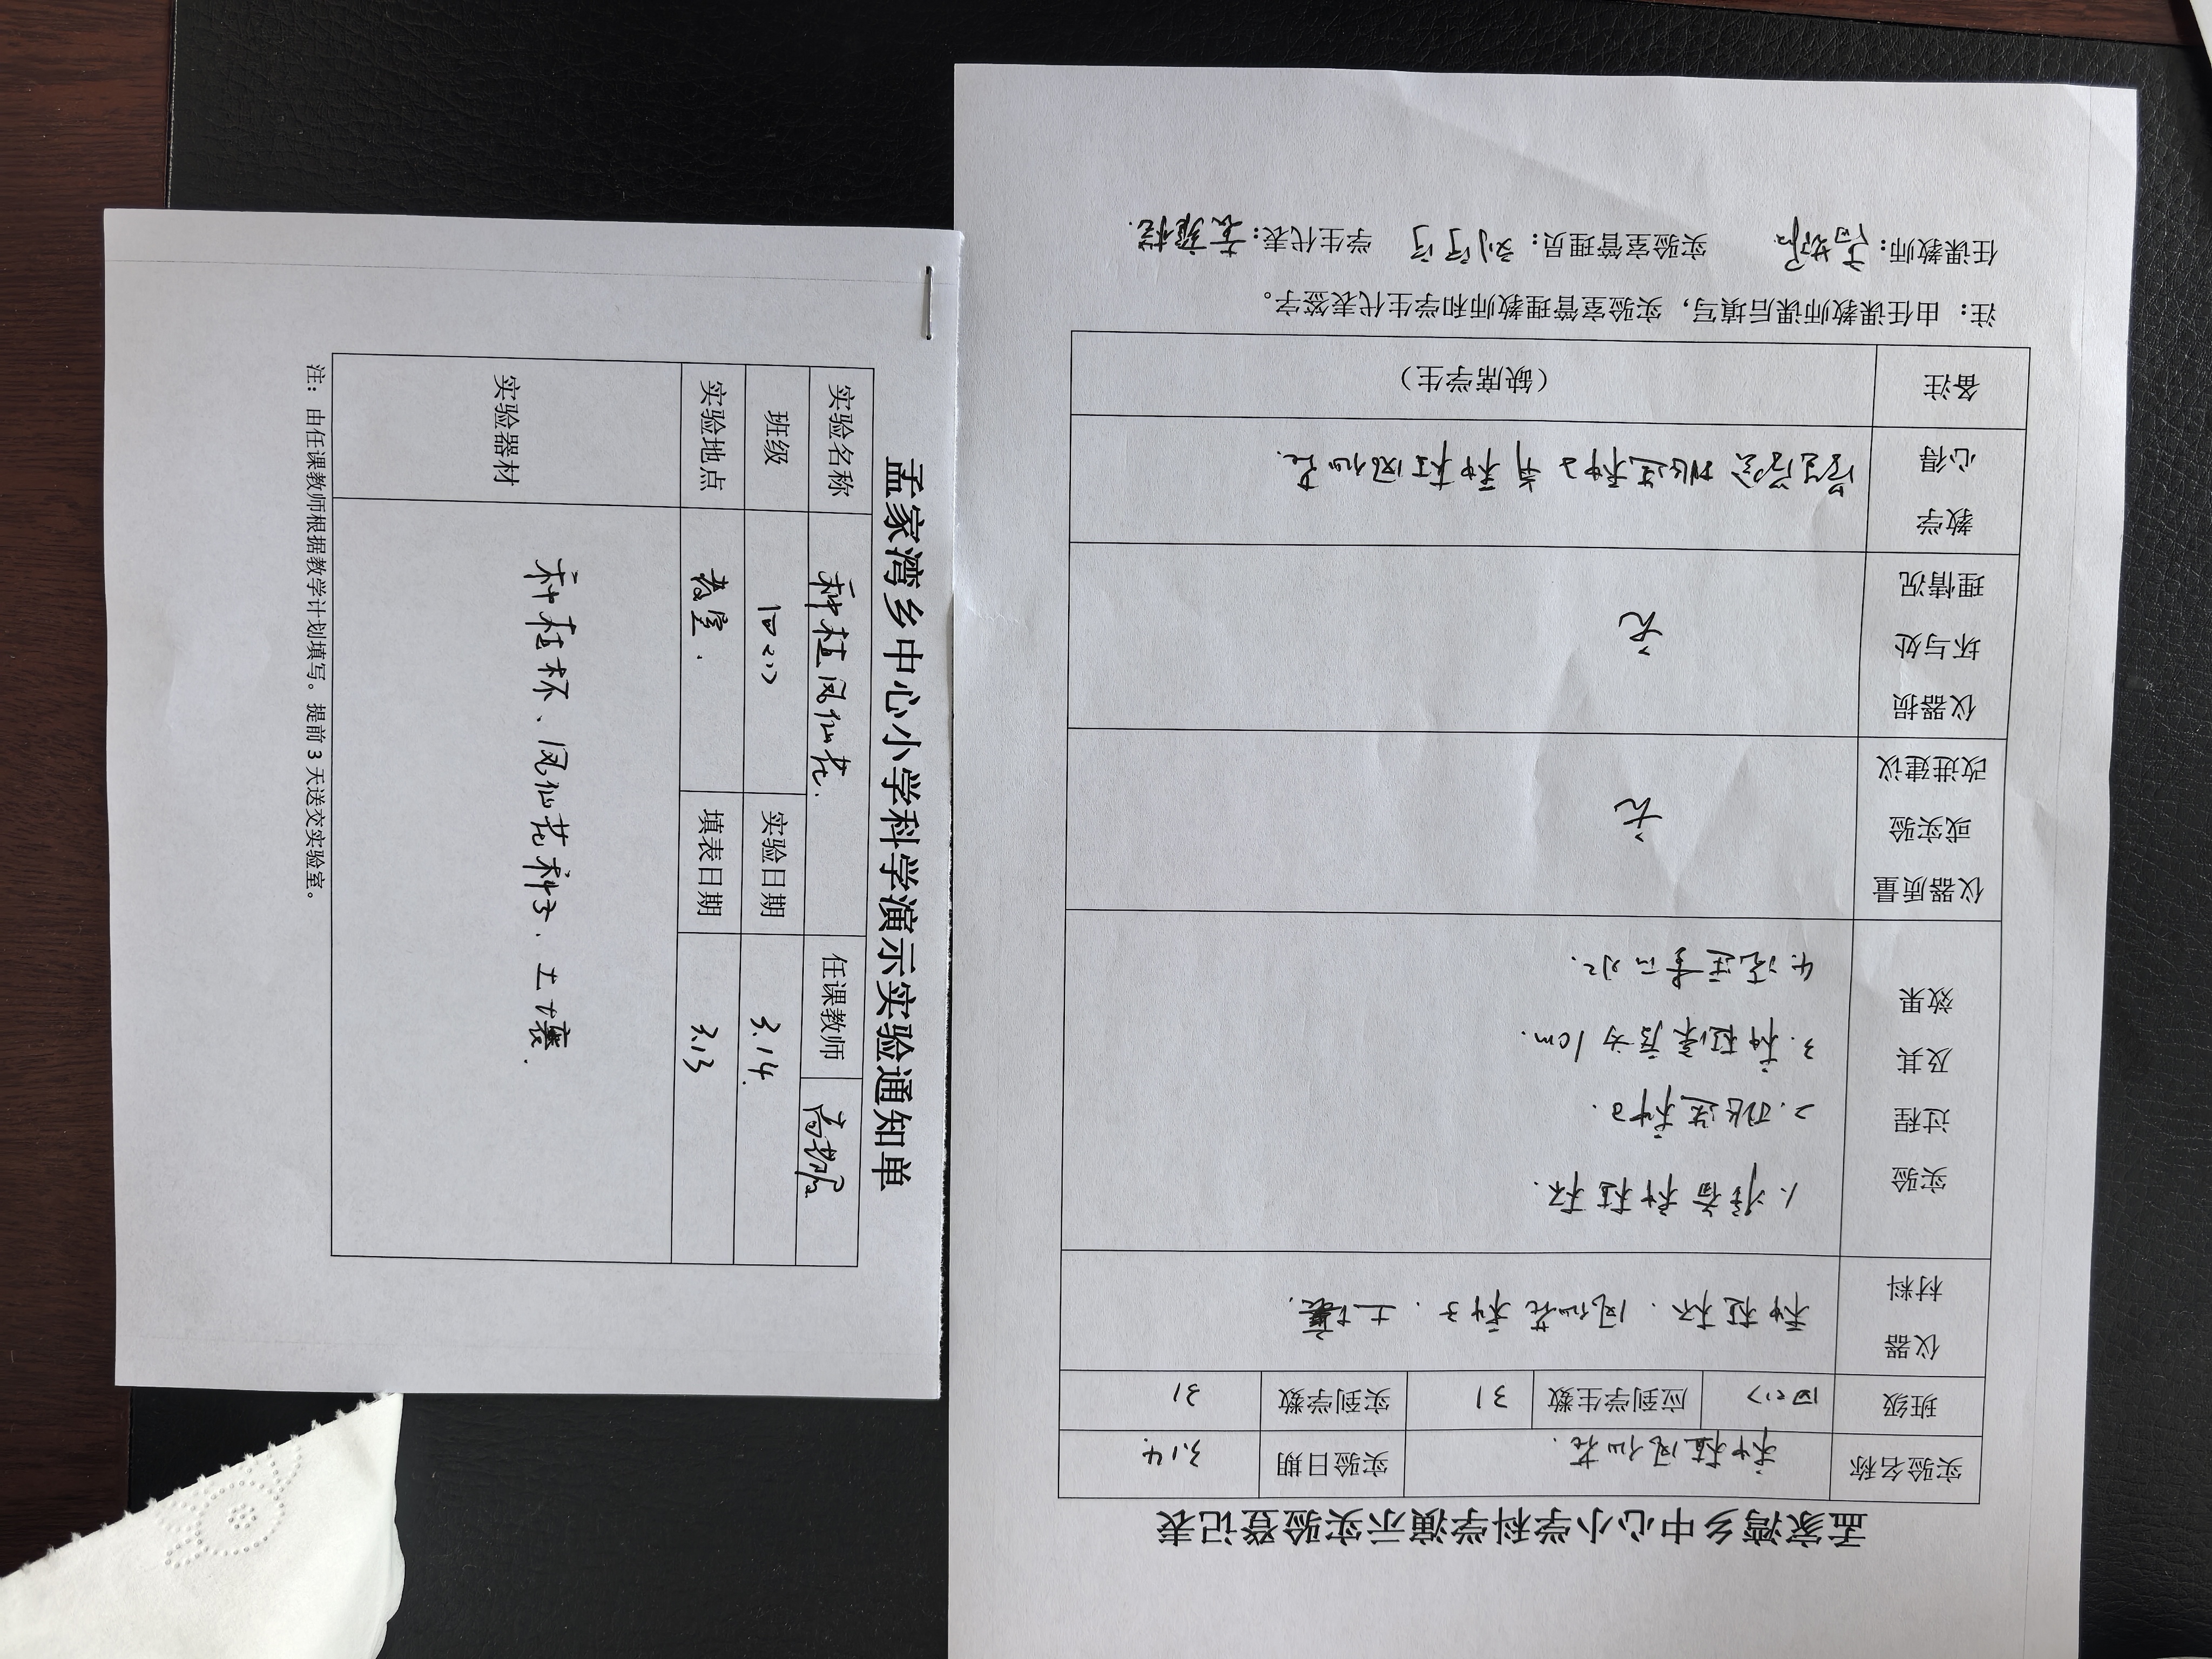 孟家湾乡中心小学科学演示实验通知单
实验名称 种植凤仙花. 任课教师
班级 四(1) 实验日期 3.14.
实验地点 教室. 填表日期 3.13
实验器材 种植杯、凤仙花种子、土壤.
注：由任课教师根据教学计划填写。提前 3 天送交实验室。
孟家湾乡中心小学科学演示实验登记表
实验名称 种植凤仙花. 实验日期 3.14
班级 四(1) 应到学生数 31 实到学数 31
仪器
材料
种植杯. 凤仙花种子. 土壤.
实验
过程
及其
效果
1. 准备种植杯.
2. 挑选种子.
3. 种植深度为 1cm.
4. 浇适量的水.
仪器质量
或实验
改进建议
无
仪器损
坏与处
理情况
无
教学
心得
学生学会挑选种子并种植凤仙花.
备注 （缺席学生）
注：由任课教师课后填写，实验室管理教师和学生代表签字。
任课教师： 实验室管理员： 学生代表：